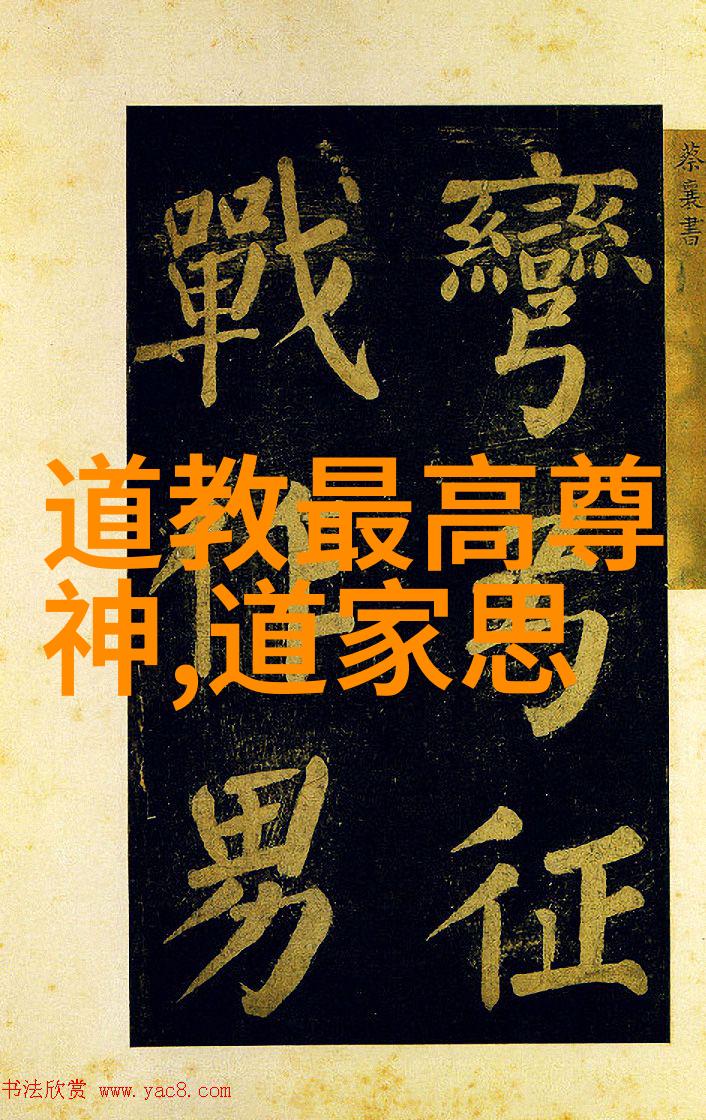 蔡襄書
彎弓征
戰作男
道教最高尊
神,道家思
书法欣赏 www.yac8.com